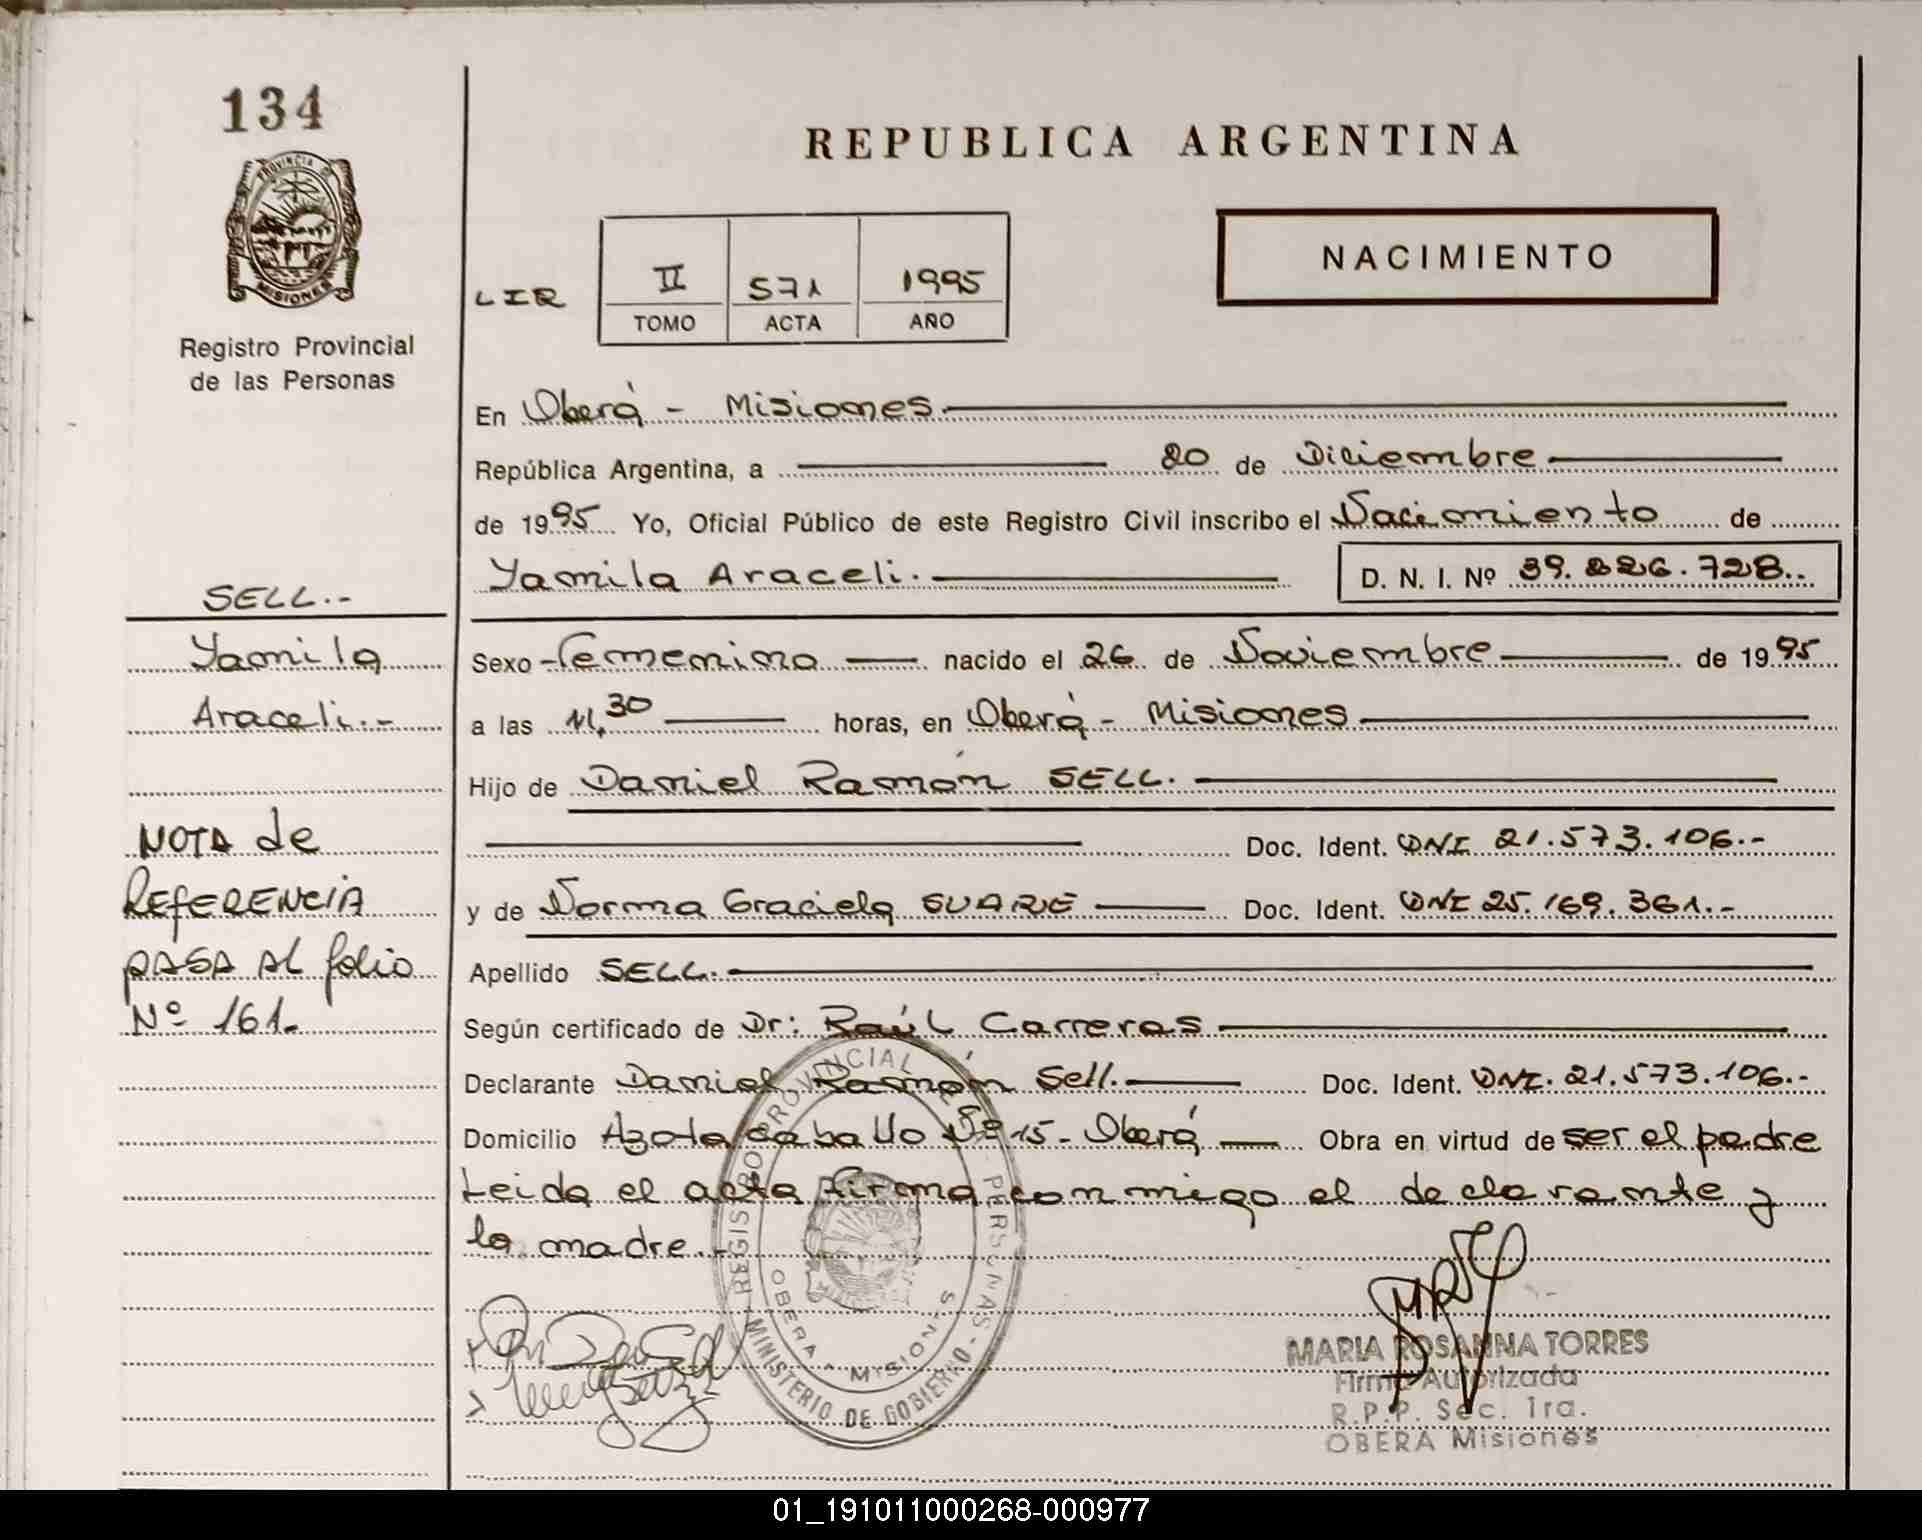 134
PROVINCIA DE
MISIONES
Registro Provincial
de las Personas
REPUBLICA ARGENTINA
NACIMIENTO
LIR II 571 1995
TOMO ACTA AÑO
En Oberá - Misiones.
República Argentina, a 20 de Diciembre
de 1995 Yo, Oficial Público de este Registro Civil inscribo el Nacimiento de
Yamila Araceli. D. N. I. Nº 39.226.728..
SELL.-
Yamila
Araceli.-
Sexo Femenino nacido el 26 de Noviembre de 1995
a las 11,30 horas, en Oberá - Misiones
Hijo de Daniel Ramón SELL.
Doc. Ident. DNI 21.573.106.-
y de Norma Graciela SUARE Doc. Ident. DNI 25.169.361.-
NOTA de
REFERENCIA
PASA AL folio
Nº 161.
Apellido SELL.
Según certificado de Dr: Raúl Carreras
Declarante Daniel Ramón Sell. Doc. Ident. DNI. 21.573.106.-
Domicilio Azota caballo Nº 15 - Oberá Obra en virtud de ser el padre
Leida el acta firma conmigo el declarante y
la madre.-
REGISTRO PROVINCIAL DE LAS PERSONAS - MINISTERIO DE GOBIERNO -
OBERA - MISIONES
MARIA ROSANNA TORRES
Firma Autorizada
R.P.P. Sec. 1ra.
OBERA Misiones
01_191011000268-000977